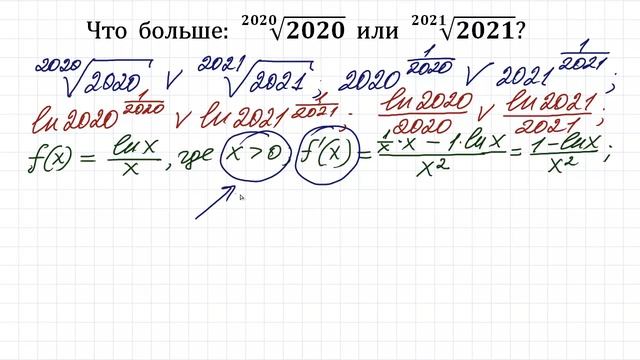 Что больше: ²⁰²⁰√2020 или ²⁰²¹√2021?
²⁰²⁰√2020 ∨ ²⁰²¹√2021; 2020^(1/2020) ∨ 2021^(1/2021);
ln 2020^(1/2020) ∨ ln 2021^(1/2021). ln 2020/2020 ∨ ln 2021/2021;
f(x) = ln x/x, где x>0, f'(x) = (1/x · x − 1·ln x)/x² = (1−ln x)/x²;